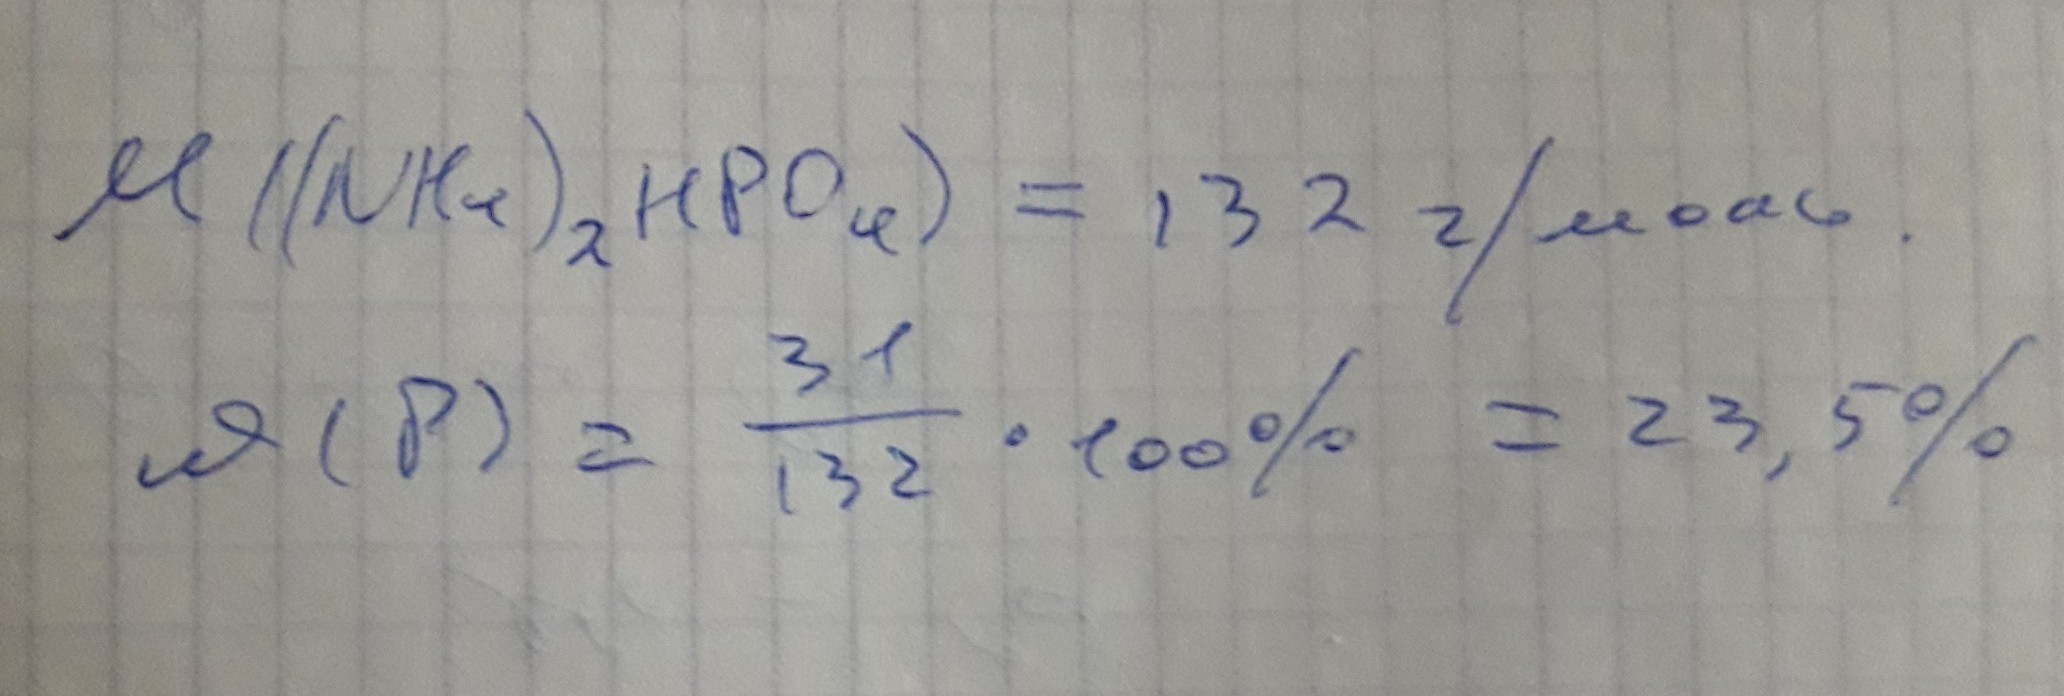 M((NH₄)₂HPO₄) = 132 г/моль.
ω(P) = 31/132 · 100% = 23,5%